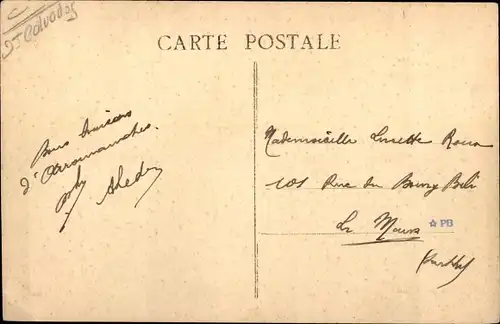 Calvados
CARTE POSTALE
Bons baisers
d'Arromanches.
Mademoiselle Lucette
101 Rue du Bourg Belé
Le Mans
☆ PB
(Sarthe)